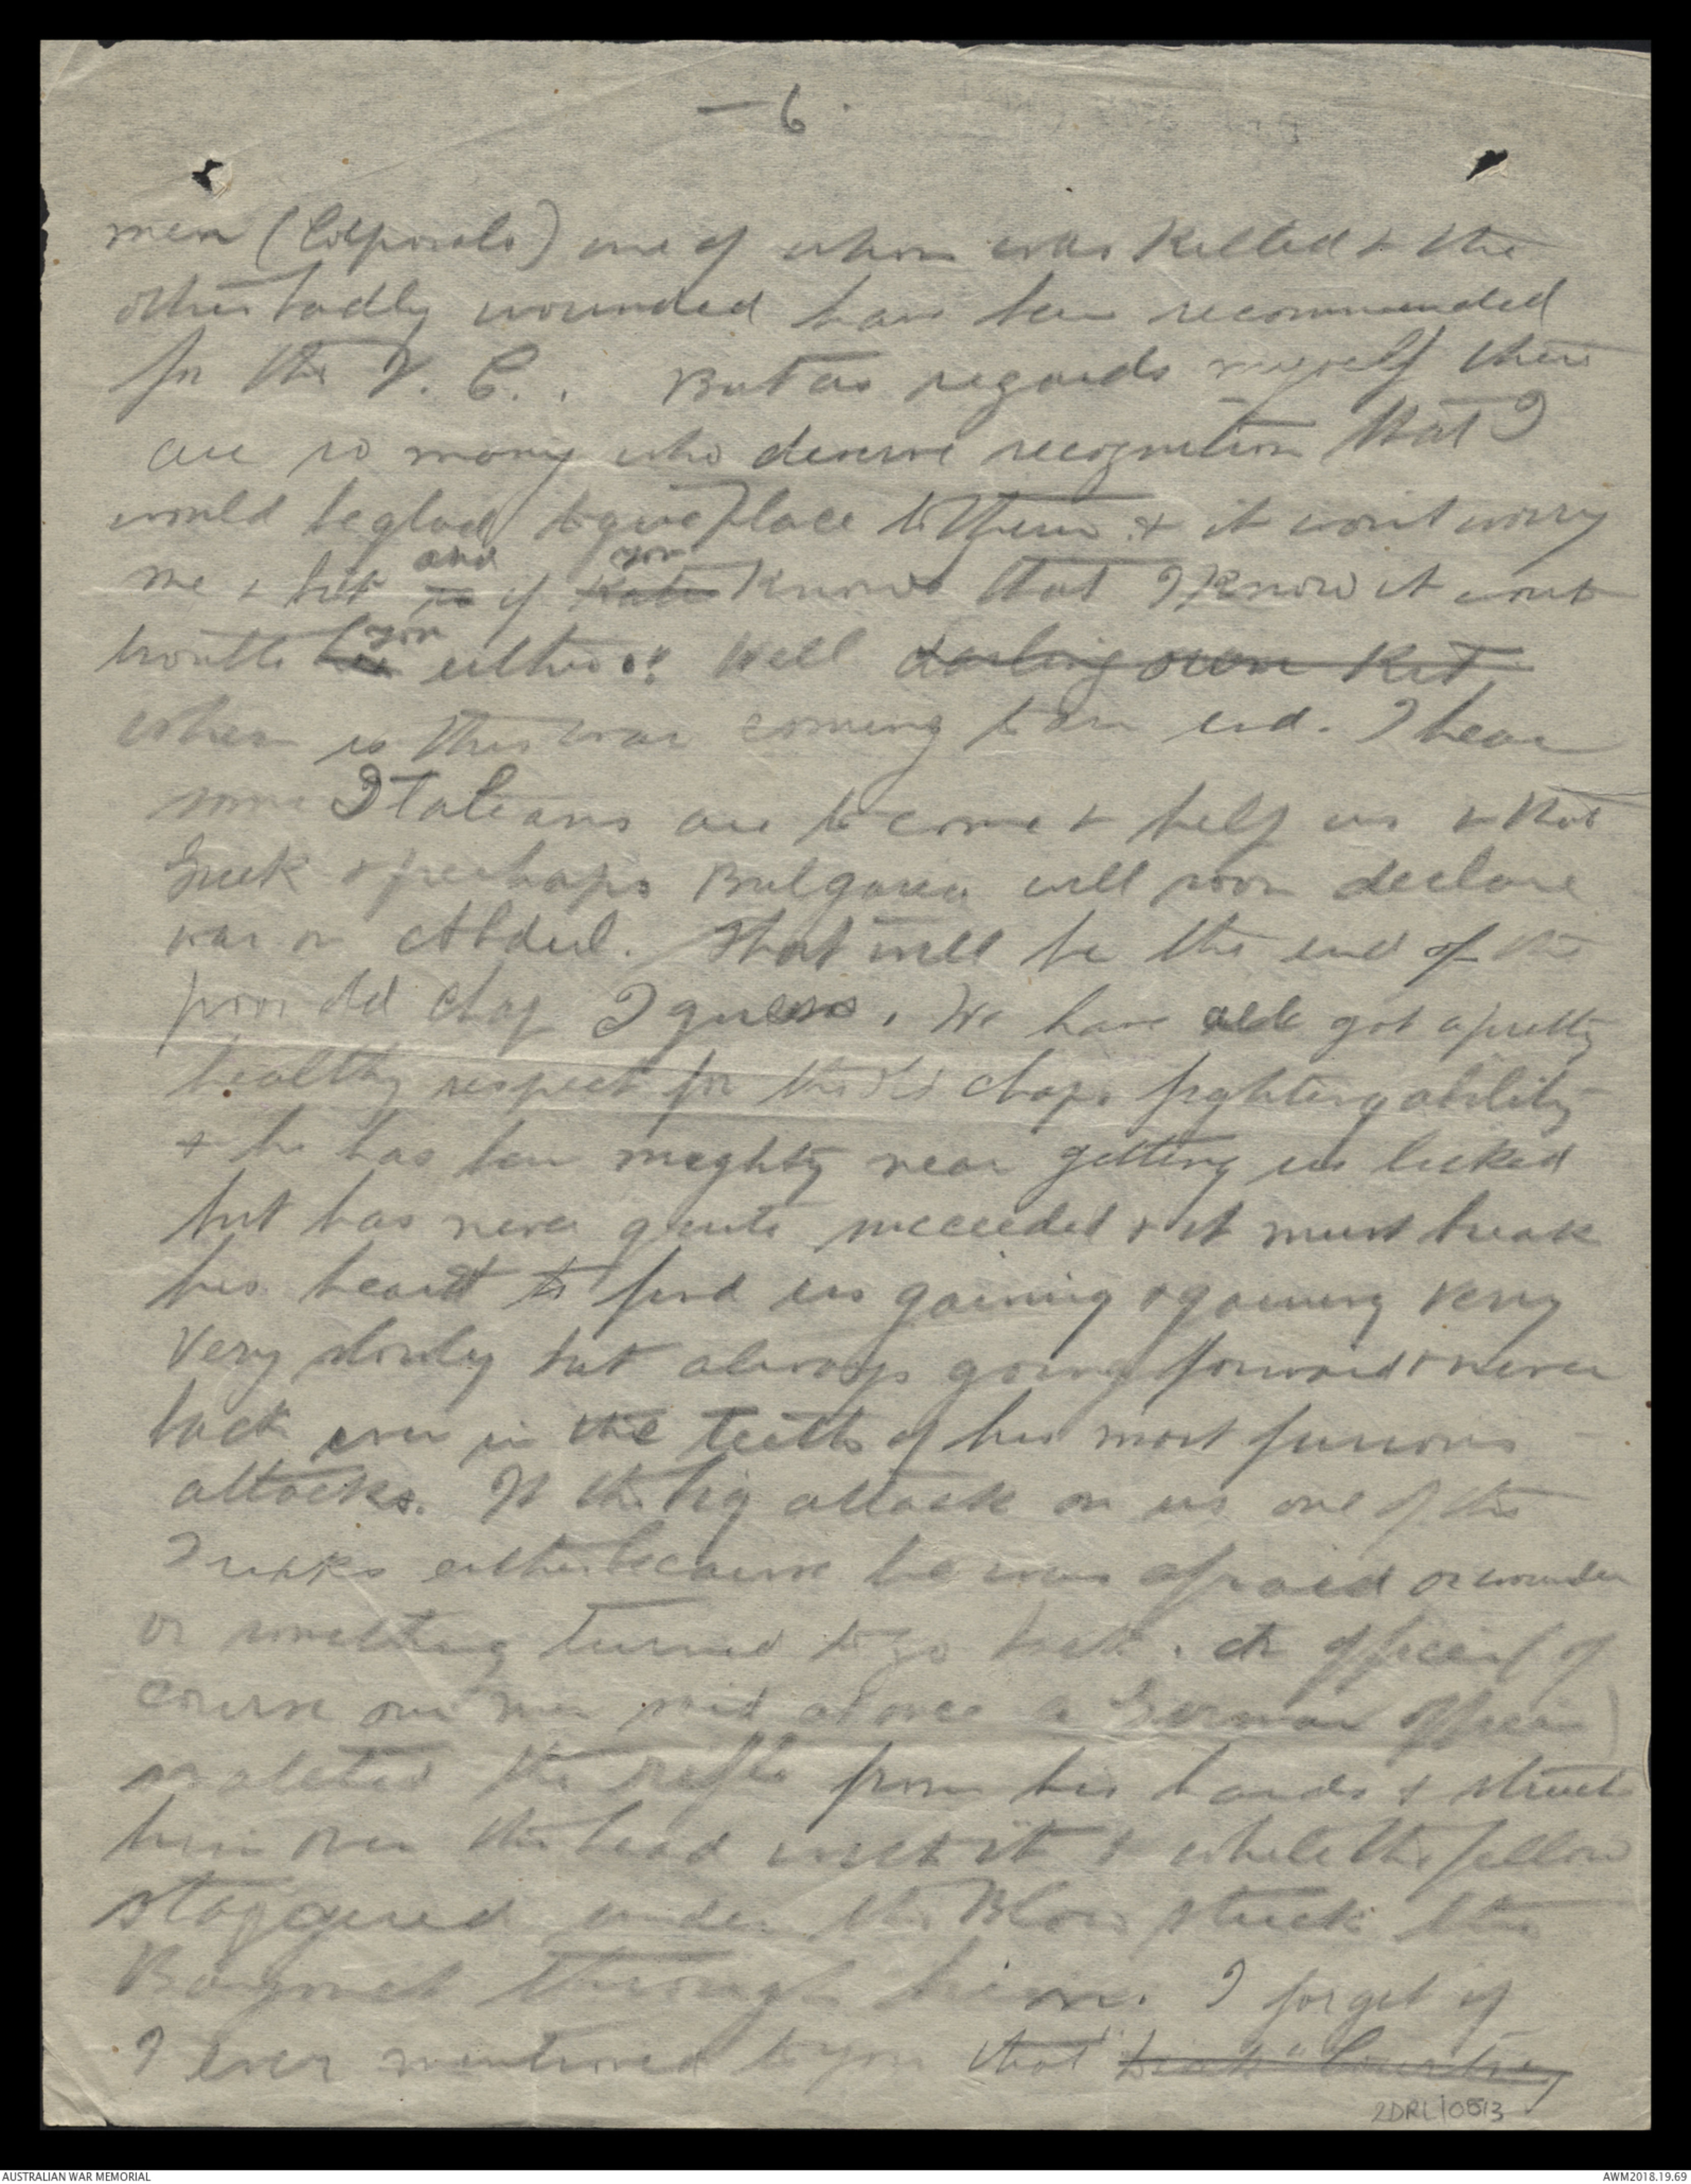 - 6.
men (Corporals) one of whom was killed & the
other badly wounded have been recommended
for the V. C.. But as regards myself there
are so many who deserve recognition that I
would be glad to give place to them & it wont worry
me a bit and if you know that I know it wont
trouble you either. Well darling own Kit
when is this war coming to an end. I hear
some Italians are to come & help us & that
Greek & perhaps Bulgaria will soon declare
war on Abdul. That will be the end of the
poor old chap I guess. We have all got a pretty
healthy respect for the old chaps fighting ability
& he has been mighty near getting us licked
but has never quite succeeded & it must break
his heart to find us gaining & gaining very
very slowly but always going forward & never
back even in the teeth of his most furious
attacks. In the big attack on us one of the
Turks either because he was afraid or wounded
or something turned to go back. An officer (of
course our men said at once a German officer)
snatched the rifle from his hands & struck
him over the head with it & while the fellow
staggered under the Blow stuck the
Bayonet through him. I forget if
I ever mentioned to you that Courtney
2DRL/0513
AUSTRALIAN WAR MEMORIAL
AWM2018.19.69